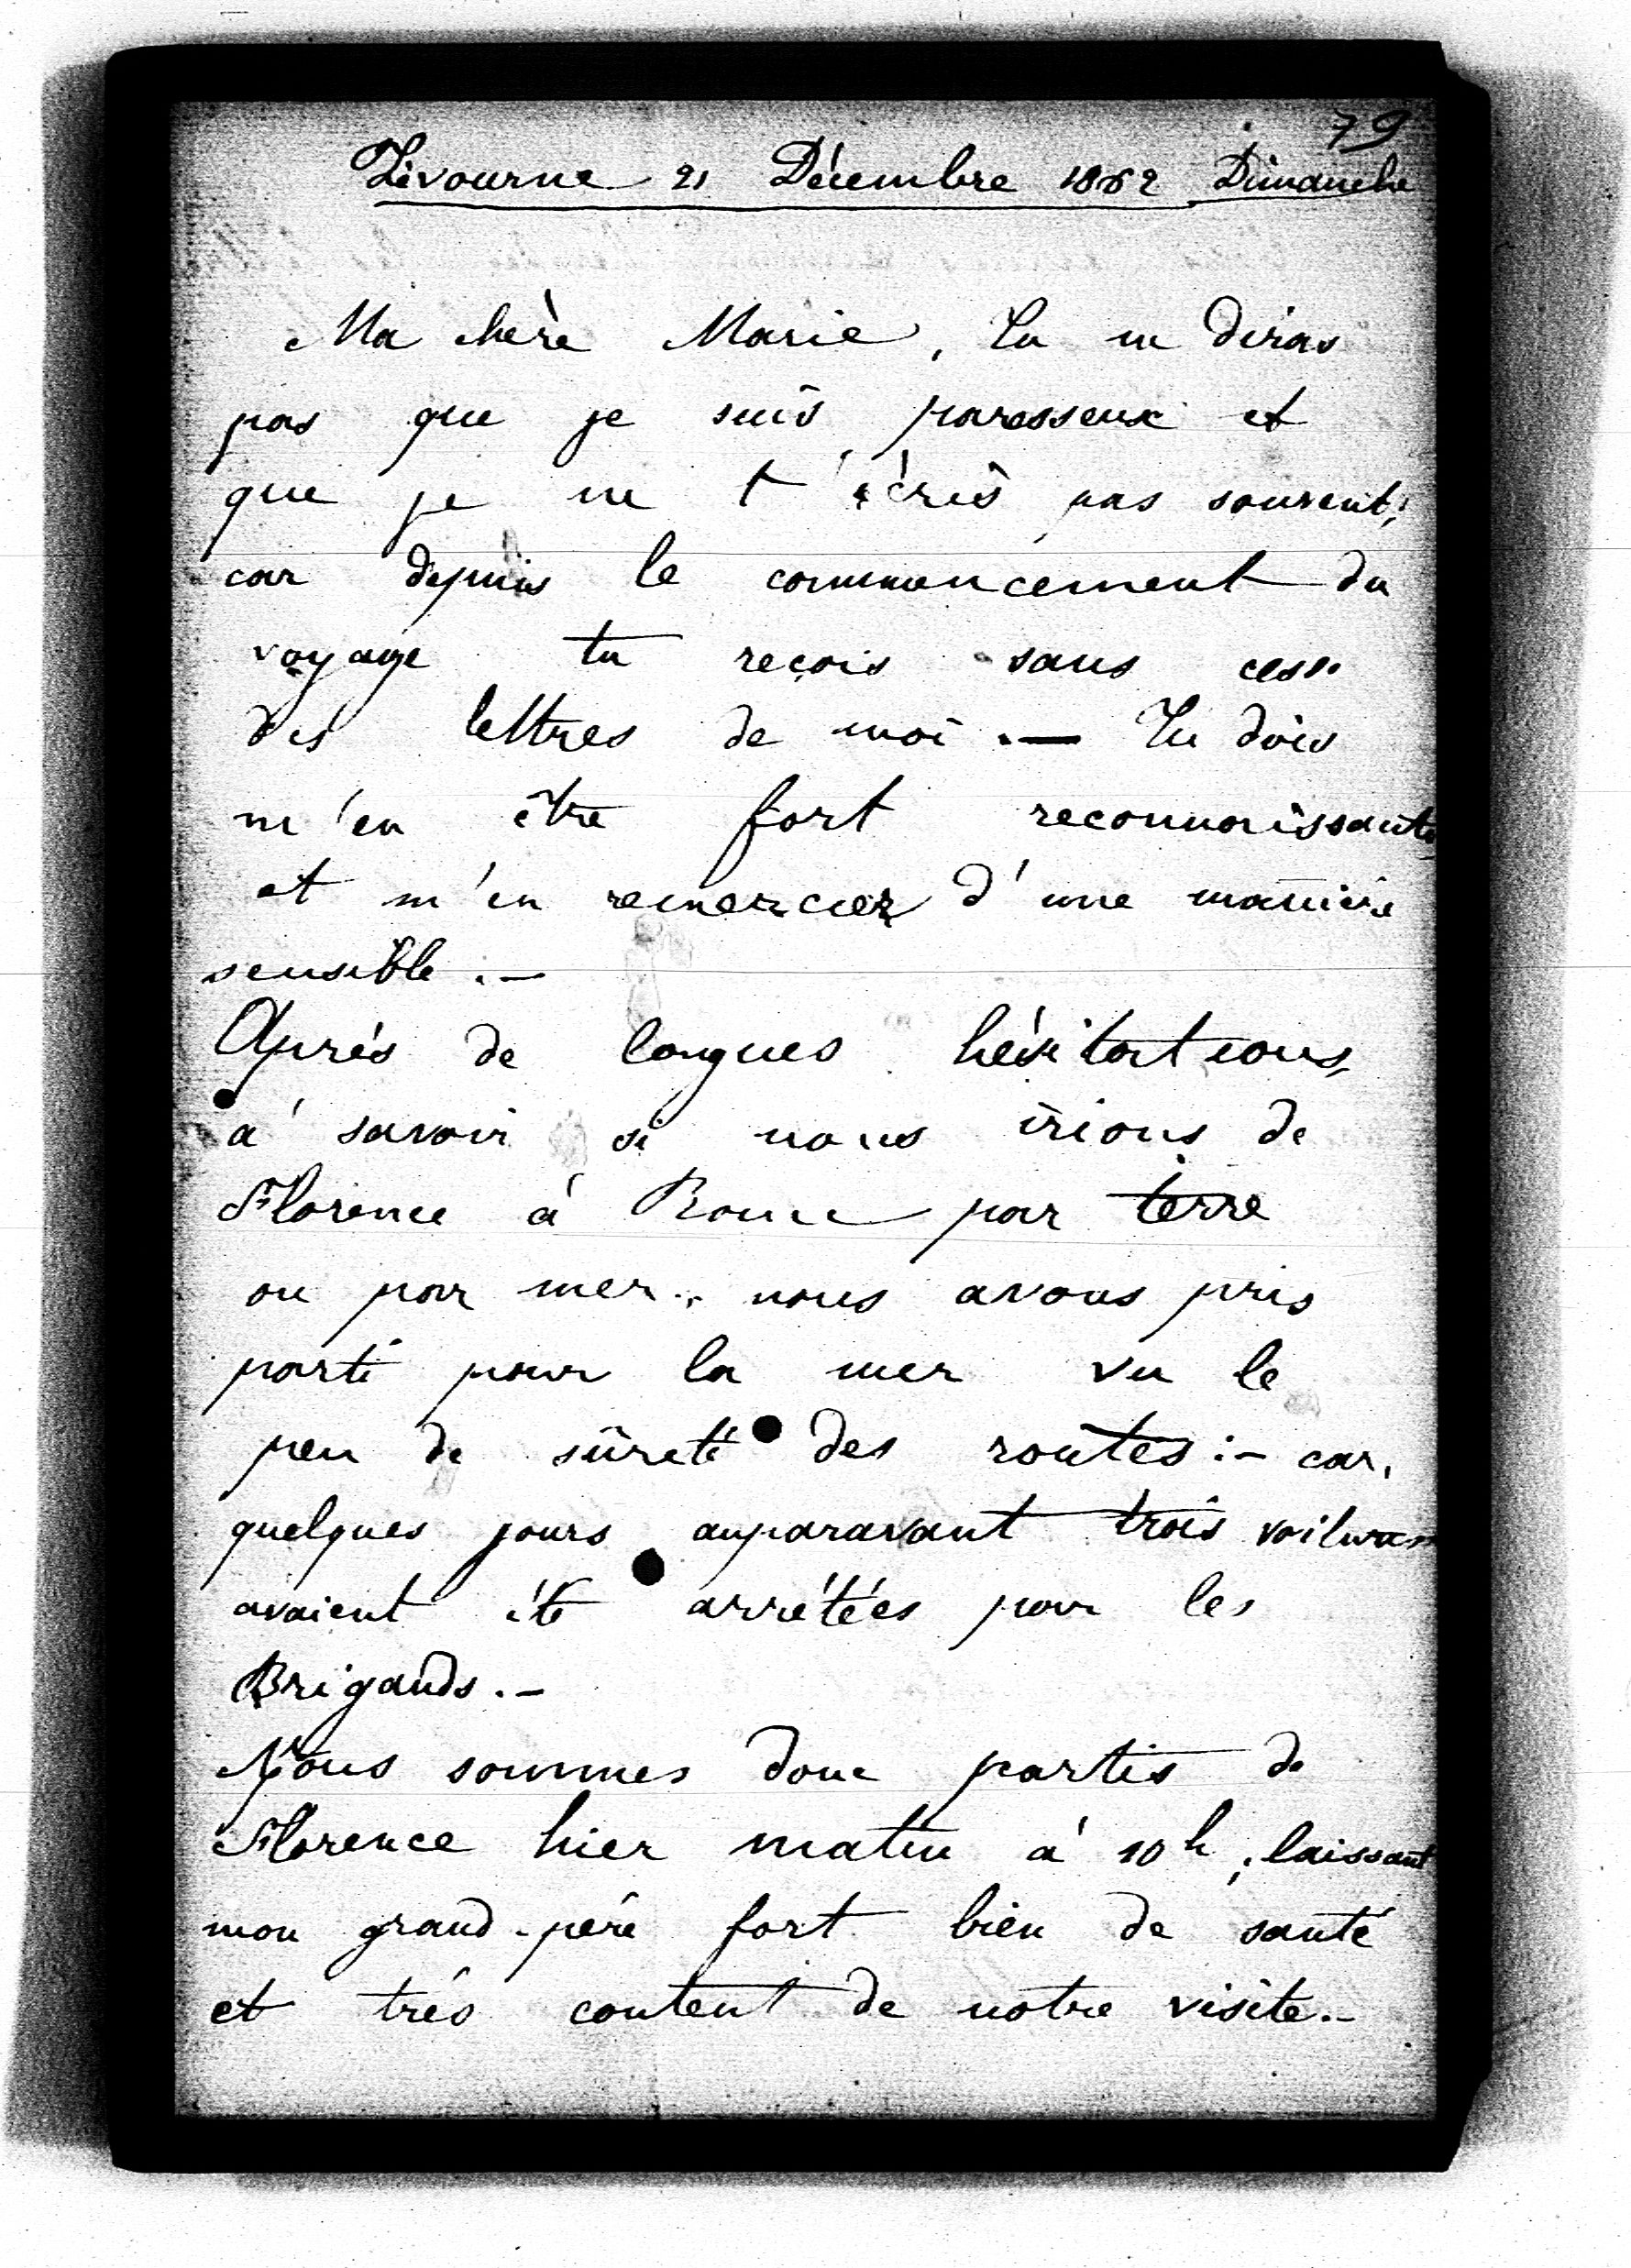 79
Livourne 21 Décembre 1862 Dimanche
Ma chère Marie, Tu ne diras
pas que je suis paresseux et
que je ne t'écris pas souvent;
car depuis le commencement du
voyage tu reçois sans cesse
des lettres de moi. — Tu dois
m'en être fort reconnaissante
et m'en remercier d'une manière
sensible. —
Après de longues hésitations,
à savoir si nous irions de
Florence à Rome par terre
ou par mer, nous avons pris
parti pour la mer vu le
peu de sûreté des routes: — car,
quelques jours auparavant trois voitures
avaient été arrêtées par les
Brigands. —
Nous sommes donc partis de
Florence hier matin à 10h, laissant
mon grand-père fort bien de santé
et très content de notre visite. —